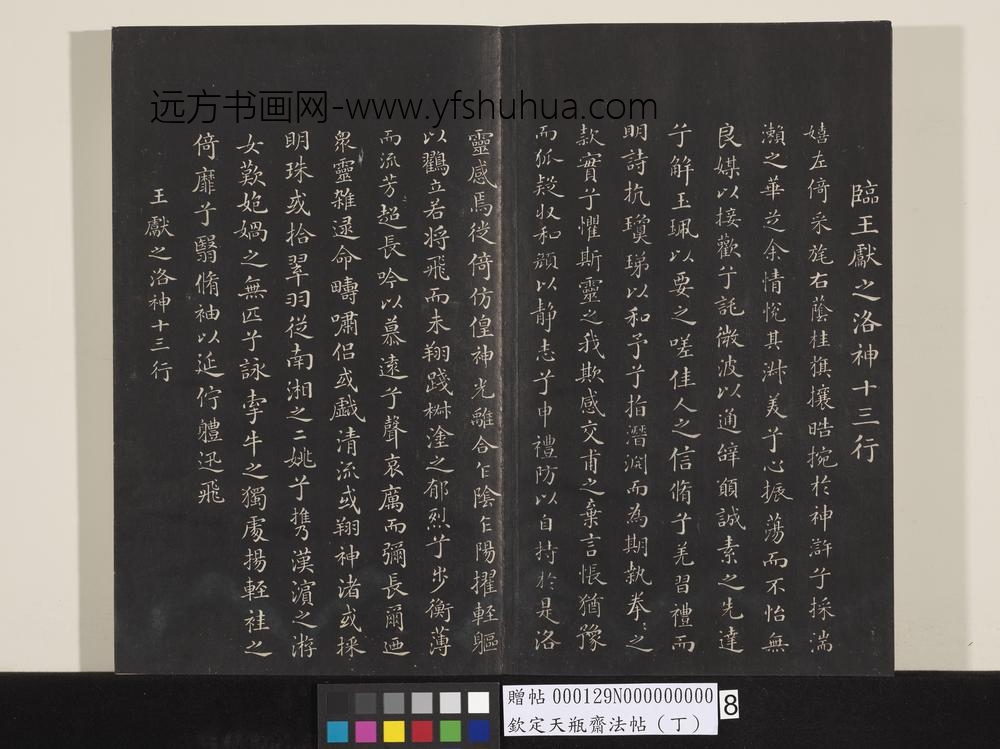 臨王獻之洛神十三行
嬉左倚采旄右蔭桂旗攘皓捥於神滸兮採湍
瀨之華芝余情悅其淋美兮心振蕩而不怡無
良媒以接歡兮託微波以通辭願誠素之先達
兮解玉珮以要之嗟佳人之信脩兮羌習禮而
明詩抗瓊珶以和予兮指潛淵而為期執拳〻之
款實兮懼斯靈之我欺感交甫之棄言悵猶豫
而狐疑収和顏以静志兮申禮防以自持於是洛
靈感焉徙倚仿偟神光離合乍陰乍陽擢輕軀
以鶴立若將飛而未翔踐椒塗之郁烈兮步衡薄
而流芳超長吟以慕遠兮聲哀厲而彌長爾迺
衆靈雜遝命疇嘯侶或戲清流或翔神渚或採
明珠或拾翠羽從南湘之二姚兮攜漢濱之游
女歎炮媧之無匹兮詠牽牛之獨處揚輕袿之
倚靡兮翳脩袖以延佇軆迅飛
王獻之洛神十三行
远方书画网-www.yfshuhua.com
贈帖 000129N000000000
欽定天瓶齋法帖（丁）
8